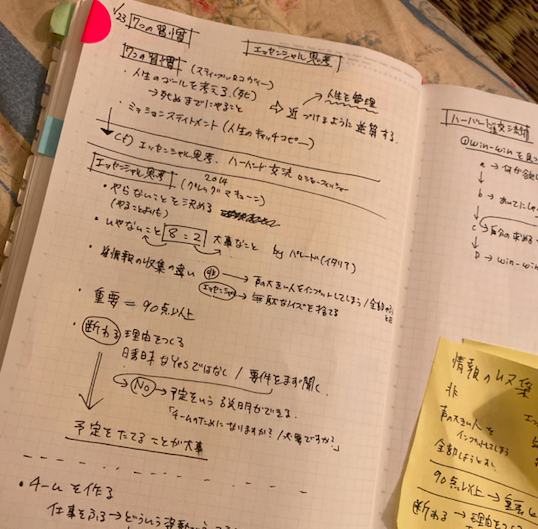 1/23 7つの習慣
エッセンシャル思考
7つの習慣 (スティーブンRコヴィー)
・人生のゴールを考える(死)
→死ぬまでにやること
⇨ 近づけるように逆算する
人生を管理
・ミッションステイトメント(人生のキャッチコピー)
Cf) エッセンシャル思考、ハーバード交渉
エッセンシャル思考 2014 (グレッグマキューン)
・やらないことを決める
(やることよりも)
・いやないこと 8:2 大事なこと by パレード(イタリア)
・情報の収集の違い 非 → 声の大きい人をインプットしてしまう/全部
エッセンシャル → 無駄なノイズを捨てる
・重要 = 90点以上
・断わる 理由をつくる
なYesではなく/要件をまず聞く。
No → 予定をいう 説明ができる。
「チームのためになりますか?/大事ですか?」
予定をたてることが大事
・チームを作る
仕事をふる→どういう
ハーバード流交渉術
①win-winを見つ
a → なぜ
b → おいてに
c → 自分の求める
D → win-win
情報の収集
非
声の大きい人を
インプットしてしまう
全部しようとする
90点以上→重要
断わる → 理由をつ